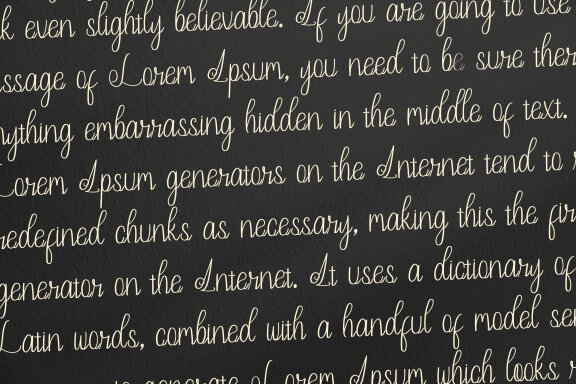 k even slightly believable. If you are going to use
ssage of Lorem Ipsum, you need to be sure ther
nything embarrassing hidden in the middle of text.
Lorem Ipsum generators on the Internet tend to r
redefined chunks as necessary, making this the fir
generator on the Internet. It uses a dictionary of
Latin words, combined with a handful of model sen
generate Lorem Ipsum which looks r